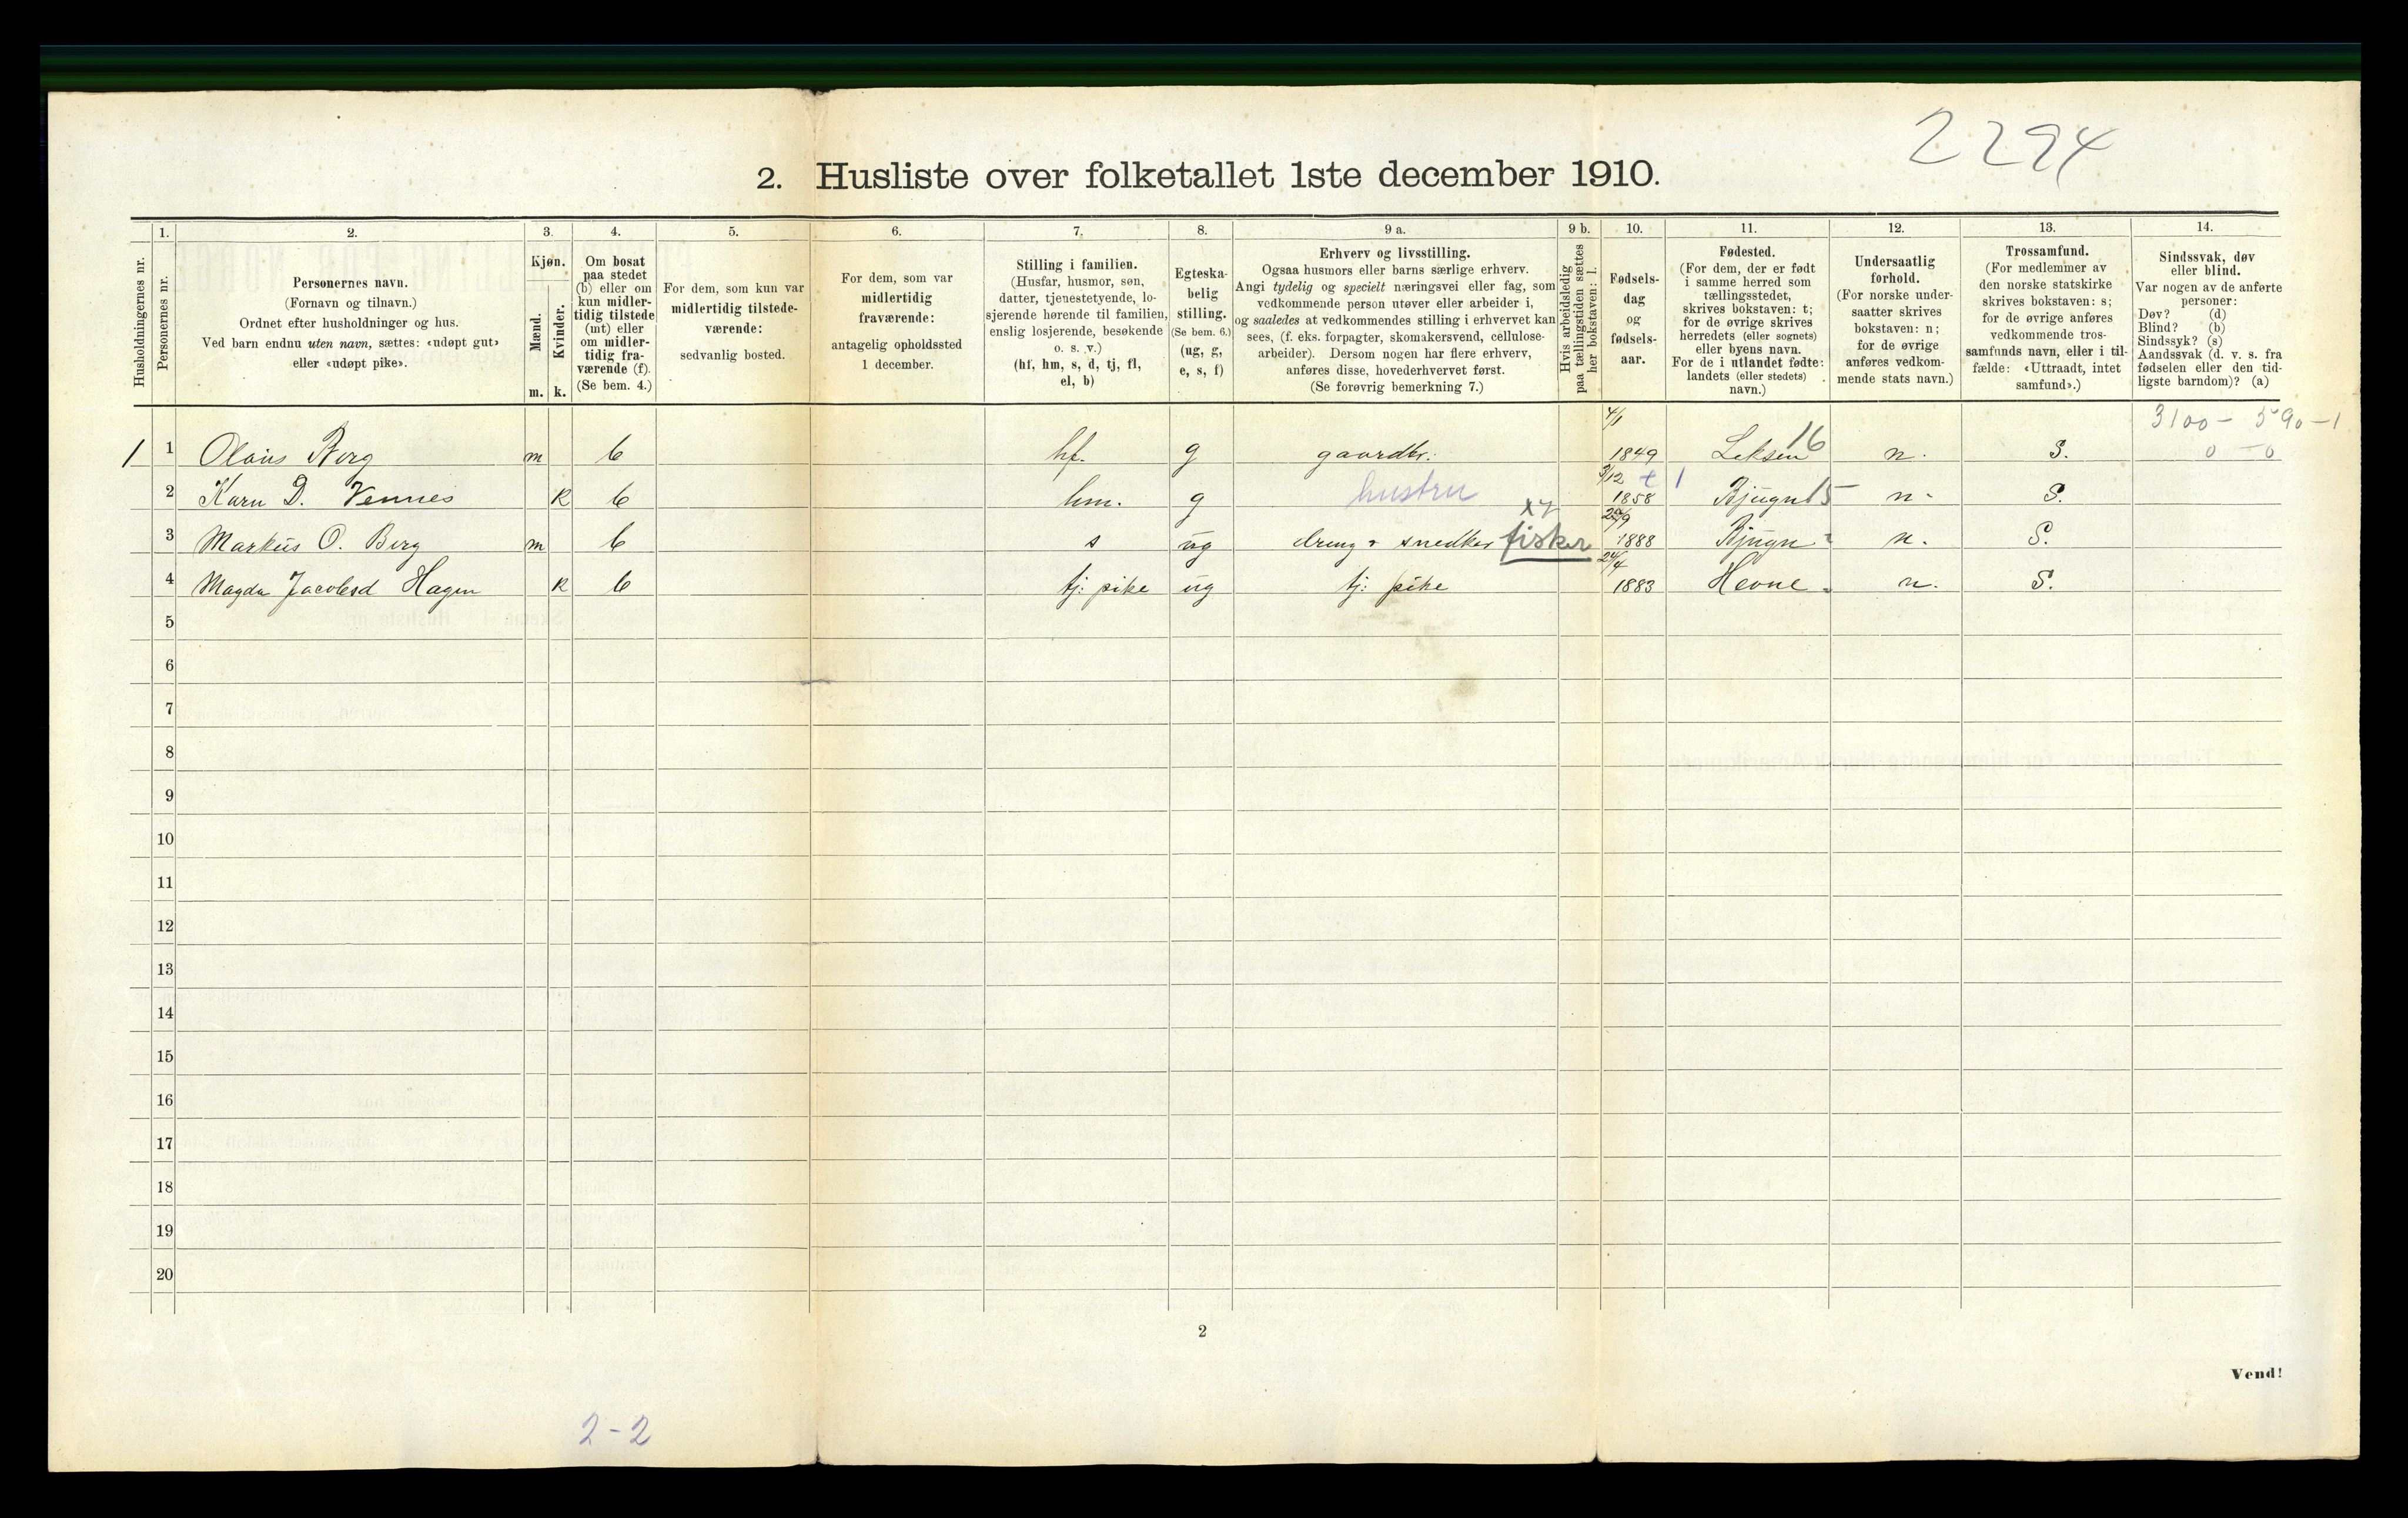 2294
2. Husliste over folketallet 1ste december 1910.
Husholdningernes nr.
1.
Personernes nr.
2.
Personernes navn.
(Fornavn og tilnavn.)
Ordnet efter husholdninger og hus.
Ved barn endnu uten navn, sættes: «udøpt gut»
eller «udøpt pike».
3.
Kjøn.
Mænd.
Kvinder.
m. k.
4.
Om bosat
paa stedet
(b) eller om
kun midler-
tidig tilstede
(mt) eller
om midler-
tidig fra-
værende (f).
(Se bem. 4.)
5.
For dem, som kun var
midlertidig tilstede-
værende:
sedvanlig bosted.
6.
For dem, som var
midlertidig
fraværende:
antagelig opholdssted
1 december.
7.
Stilling i familien.
(Husfar, husmor, søn,
datter, tjenestetyende, lo-
sjerende hørende til familien,
enslig losjerende, besøkende
o. s. v.)
(hf, hm, s, d, tj, fl,
el, b)
8.
Egteska-
belig
stilling.
(Se bem. 6.)
(ug, g,
e, s, f)
9 a.
Erhverv og livsstilling.
Ogsaa husmors eller barns særlige erhverv.
Angi tydelig og specielt næringsvei eller fag, som
vedkommende person utøver eller arbeider i,
og saaledes at vedkommendes stilling i erhvervet kan
sees, (f. eks. forpagter, skomakersvend, cellulose-
arbeider). Dersom nogen har flere erhverv,
anføres disse, hovederhvervet først.
(Se forøvrig bemerkning 7.)
9 b.
Hvis arbeidsledig
paa tællingstiden sættes
her bokstaven: l.
10.
Fødsels-
dag
og
fødsels-
aar.
11.
Fødested.
(For dem, der er født
i samme herred som
tællingsstedet,
skrives bokstaven: t;
for de øvrige skrives
herredets (eller sognets)
eller byens navn.
For de i utlandet fødte:
landets (eller stedets)
navn.)
12.
Undersaatlig
forhold.
(For norske under-
saatter skrives
bokstaven: n;
for de øvrige
anføres vedkom-
mende stats navn.)
13.
Trossamfund.
(For medlemmer av
den norske statskirke
skrives bokstaven: s;
for de øvrige anføres
vedkommende tros-
samfunds navn, eller i til-
fælde: «Uttraadt, intet
samfund».)
14.
Sindssvak, døv
eller blind.
Var nogen av de anførte
personer:
Døv? (d)
Blind? (b)
Sindssyk? (s)
Aandssvak (d. v. s. fra
fødselen eller den tid-
ligste barndom)? (a)
3100 - 590 - 1
0 - 0
1 1 Olaus Berg m b hf. g gaardbr. 4/1 1849 Leksen 16 n. S.
2 Karn D. Vennes k b hm. g hustru 3/12 1858 t 1 Bjugn 15 n. S.
3 Markus O. Berg m b s ug dreng & snedker fisker x7 29/9 1888 Bjugn n. S.
4 Magda Jacobsd Hagen k b tj: pike ug tj: pike 24/4 1883 Hevne n. S.
5
6
7
8
9
10
11
12
13
14
15
16
17
18
19
20
2
Vend!
2-2